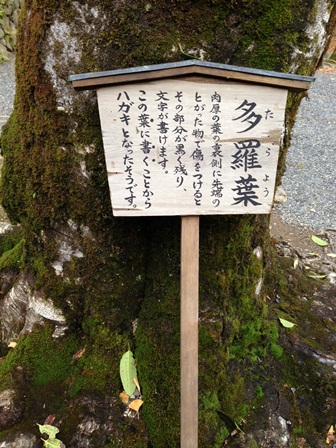 多羅葉
たらよう
肉厚の葉の裏側に先端の
とがった物で傷をつけると
その部分が黒く残り、
文字が書けます。
この葉に書くことから
ハガキとなったそうです。